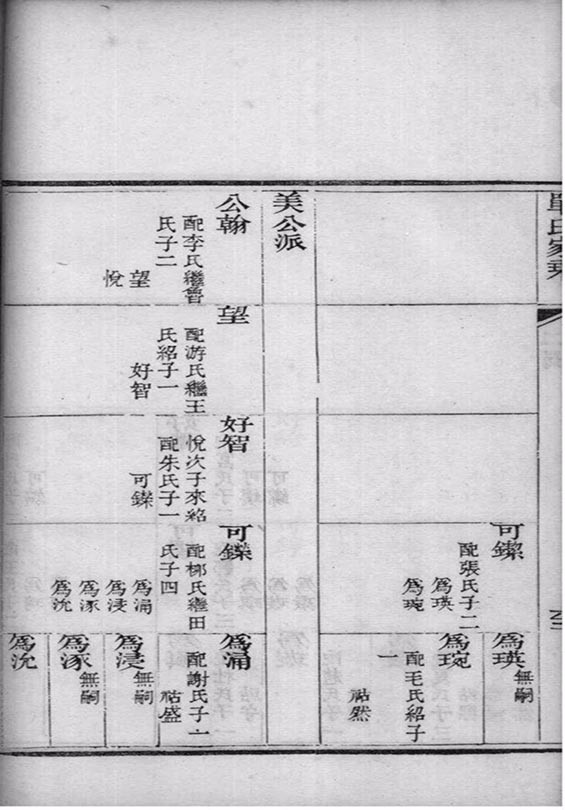 單氏家乘
可
配張氏子二
爲瑛
爲琬
爲瑛
無嗣
爲琬
配毛氏紹子
一
祜然
美公派
公翰
配李氏繼曾
氏子二
望
悅
望
配游氏繼王
氏紹子一
好智
好智
悅次子來紹
配朱氏子一
可鑠
可鑠
配柳氏繼田
氏子四
爲涌
爲浸
爲涿
爲沇
爲涌
配謝氏子一
祜盛
爲浸
無嗣
爲涿
無嗣
爲沇